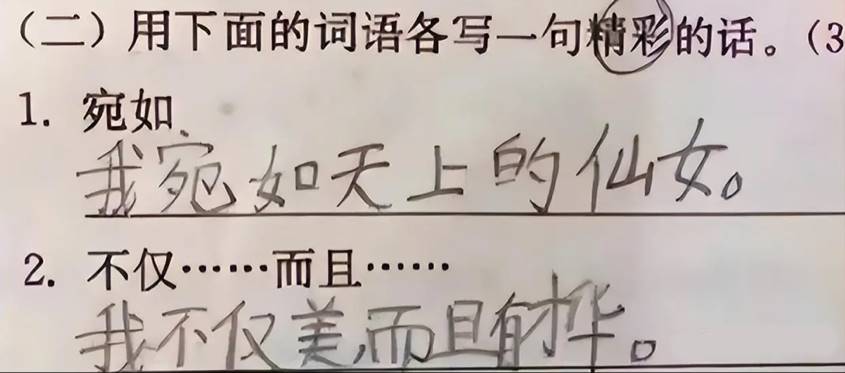 （二）用下面的词语各写一句精彩的话。（3
1. 宛如
我宛如天上的仙女。
2. 不仅……而且……
我不仅美,而且有才华。